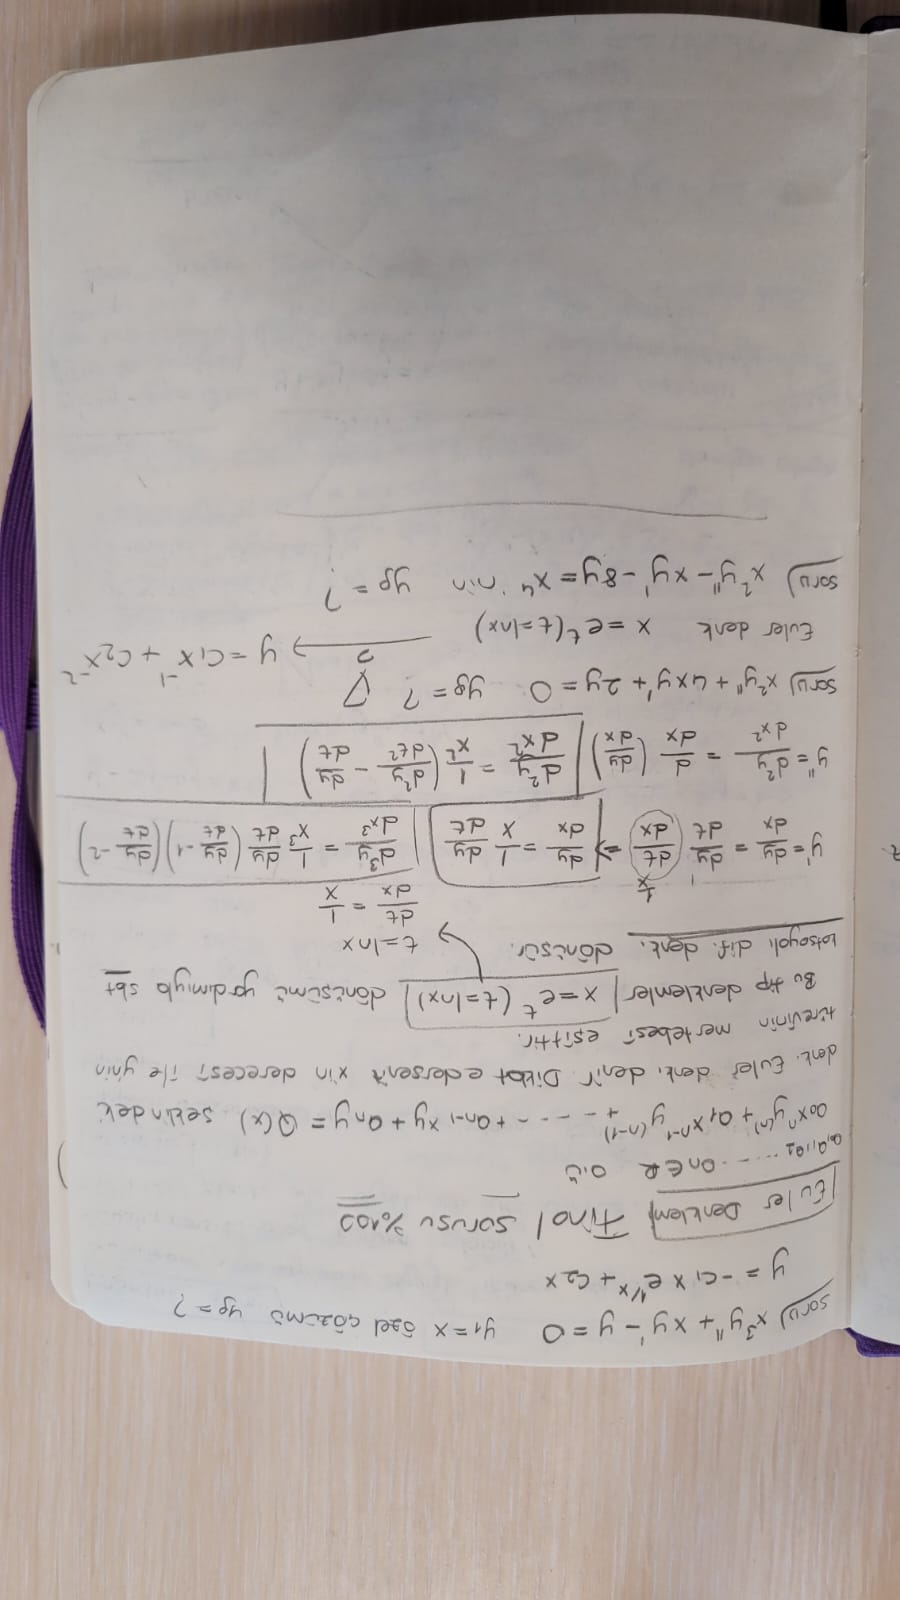 soru) x³y'' + xy' - y = 0   y₁ = x özel çözümü yg = ?
y = -c₁ x e^(1/x) + c₂x
Euler Denklemi Final sorusu %100
a₀, a₁, a₂ ..... an ∈ R o.ü
a₀xⁿy⁽ⁿ⁾ + a₁xⁿ⁻¹y⁽ⁿ⁻¹⁾ + ------ + an-1 xy + an y = Q(x) şeklindeki
denk. Euler denk. denir. Dikkat edersen x'in derecesi ile y'nin
türevinin mertebesi eşittir.
Bu tip denklemler x = eᵗ (t = lnx) dönüşümü yardımıyla sbt
katsayılı dif. denk. dönüşür.
t = lnx
dt/dx = 1/x
y' = dy/dx = dy/dt · dt/dx (1/x) ⇒ dy/dx = 1/x dy/dt   d³y/dx³ = 1/x³ dy/dt (dy/dt - 1)(dy/dt - 2)
y'' = d²y/dx² = d/dx (dy/dx)   d²y/dx² = 1/x² (d²y/dt² - dy/dt)
soru) x²y'' + 4xy' + 2y = 0   yg = ?
Euler denk   x = eᵗ (t = lnx) → y = c₁x⁻¹ + c₂x⁻²
soru) x²y'' - xy' - 8y = x⁴ nin yg = ?